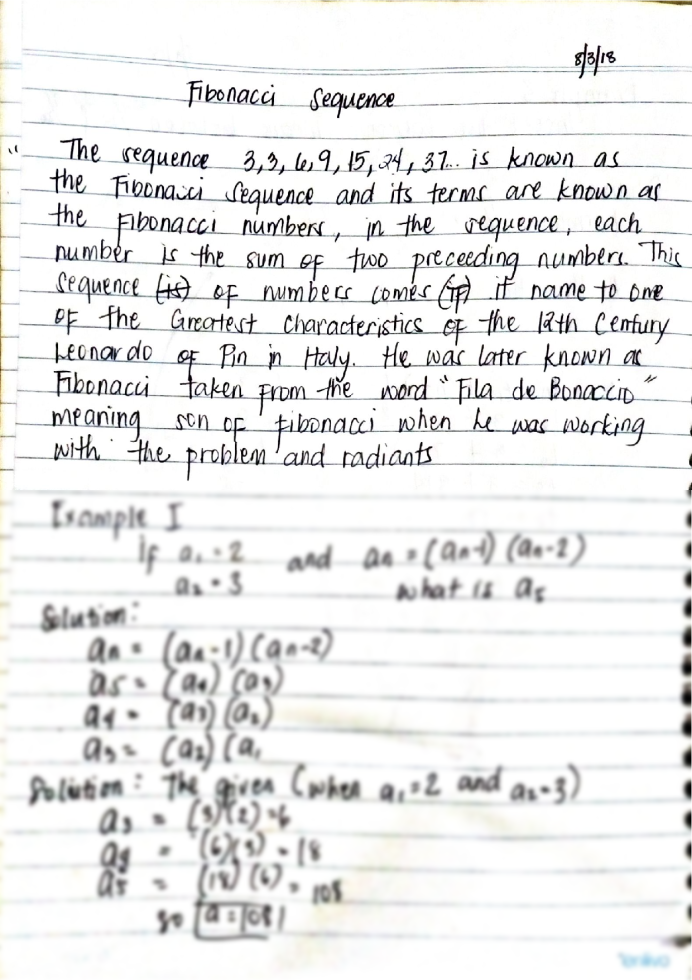 8/3/18
Fibonacci Sequence
" The sequence 3,3,6,9,15,24,37... is known as
the Fibonacci Sequence and its terms are known as
the Fibonacci numbers, in the sequence, each
number is the sum of two preceeding numbers. This
Sequence (is) of numbers comes (if) it name to one
of the Greatest Characteristics of the 12th Century
Leonardo of Pin in Italy. He was later known as
Fibonacci taken from the word "Fila de Bonaccio"
meaning son of fibonacci when he was working
with the problem and radiants
Example I
If a₁ = 2 and an = (an-1) (an-2)
a₂ = 3 what is a₅
Solution:
an = (an-1) (an-2)
a₅ = (a₄) (a₃)
a₄ = (a₃) (a₂)
a₃ = (a₂) (a₁
Solution: The given (when a₁=2 and a₂=3)
a₃ = (3)(2) = 6
= (6)(3) = 18
a₅ = (18) (6) = 108
so a = 108